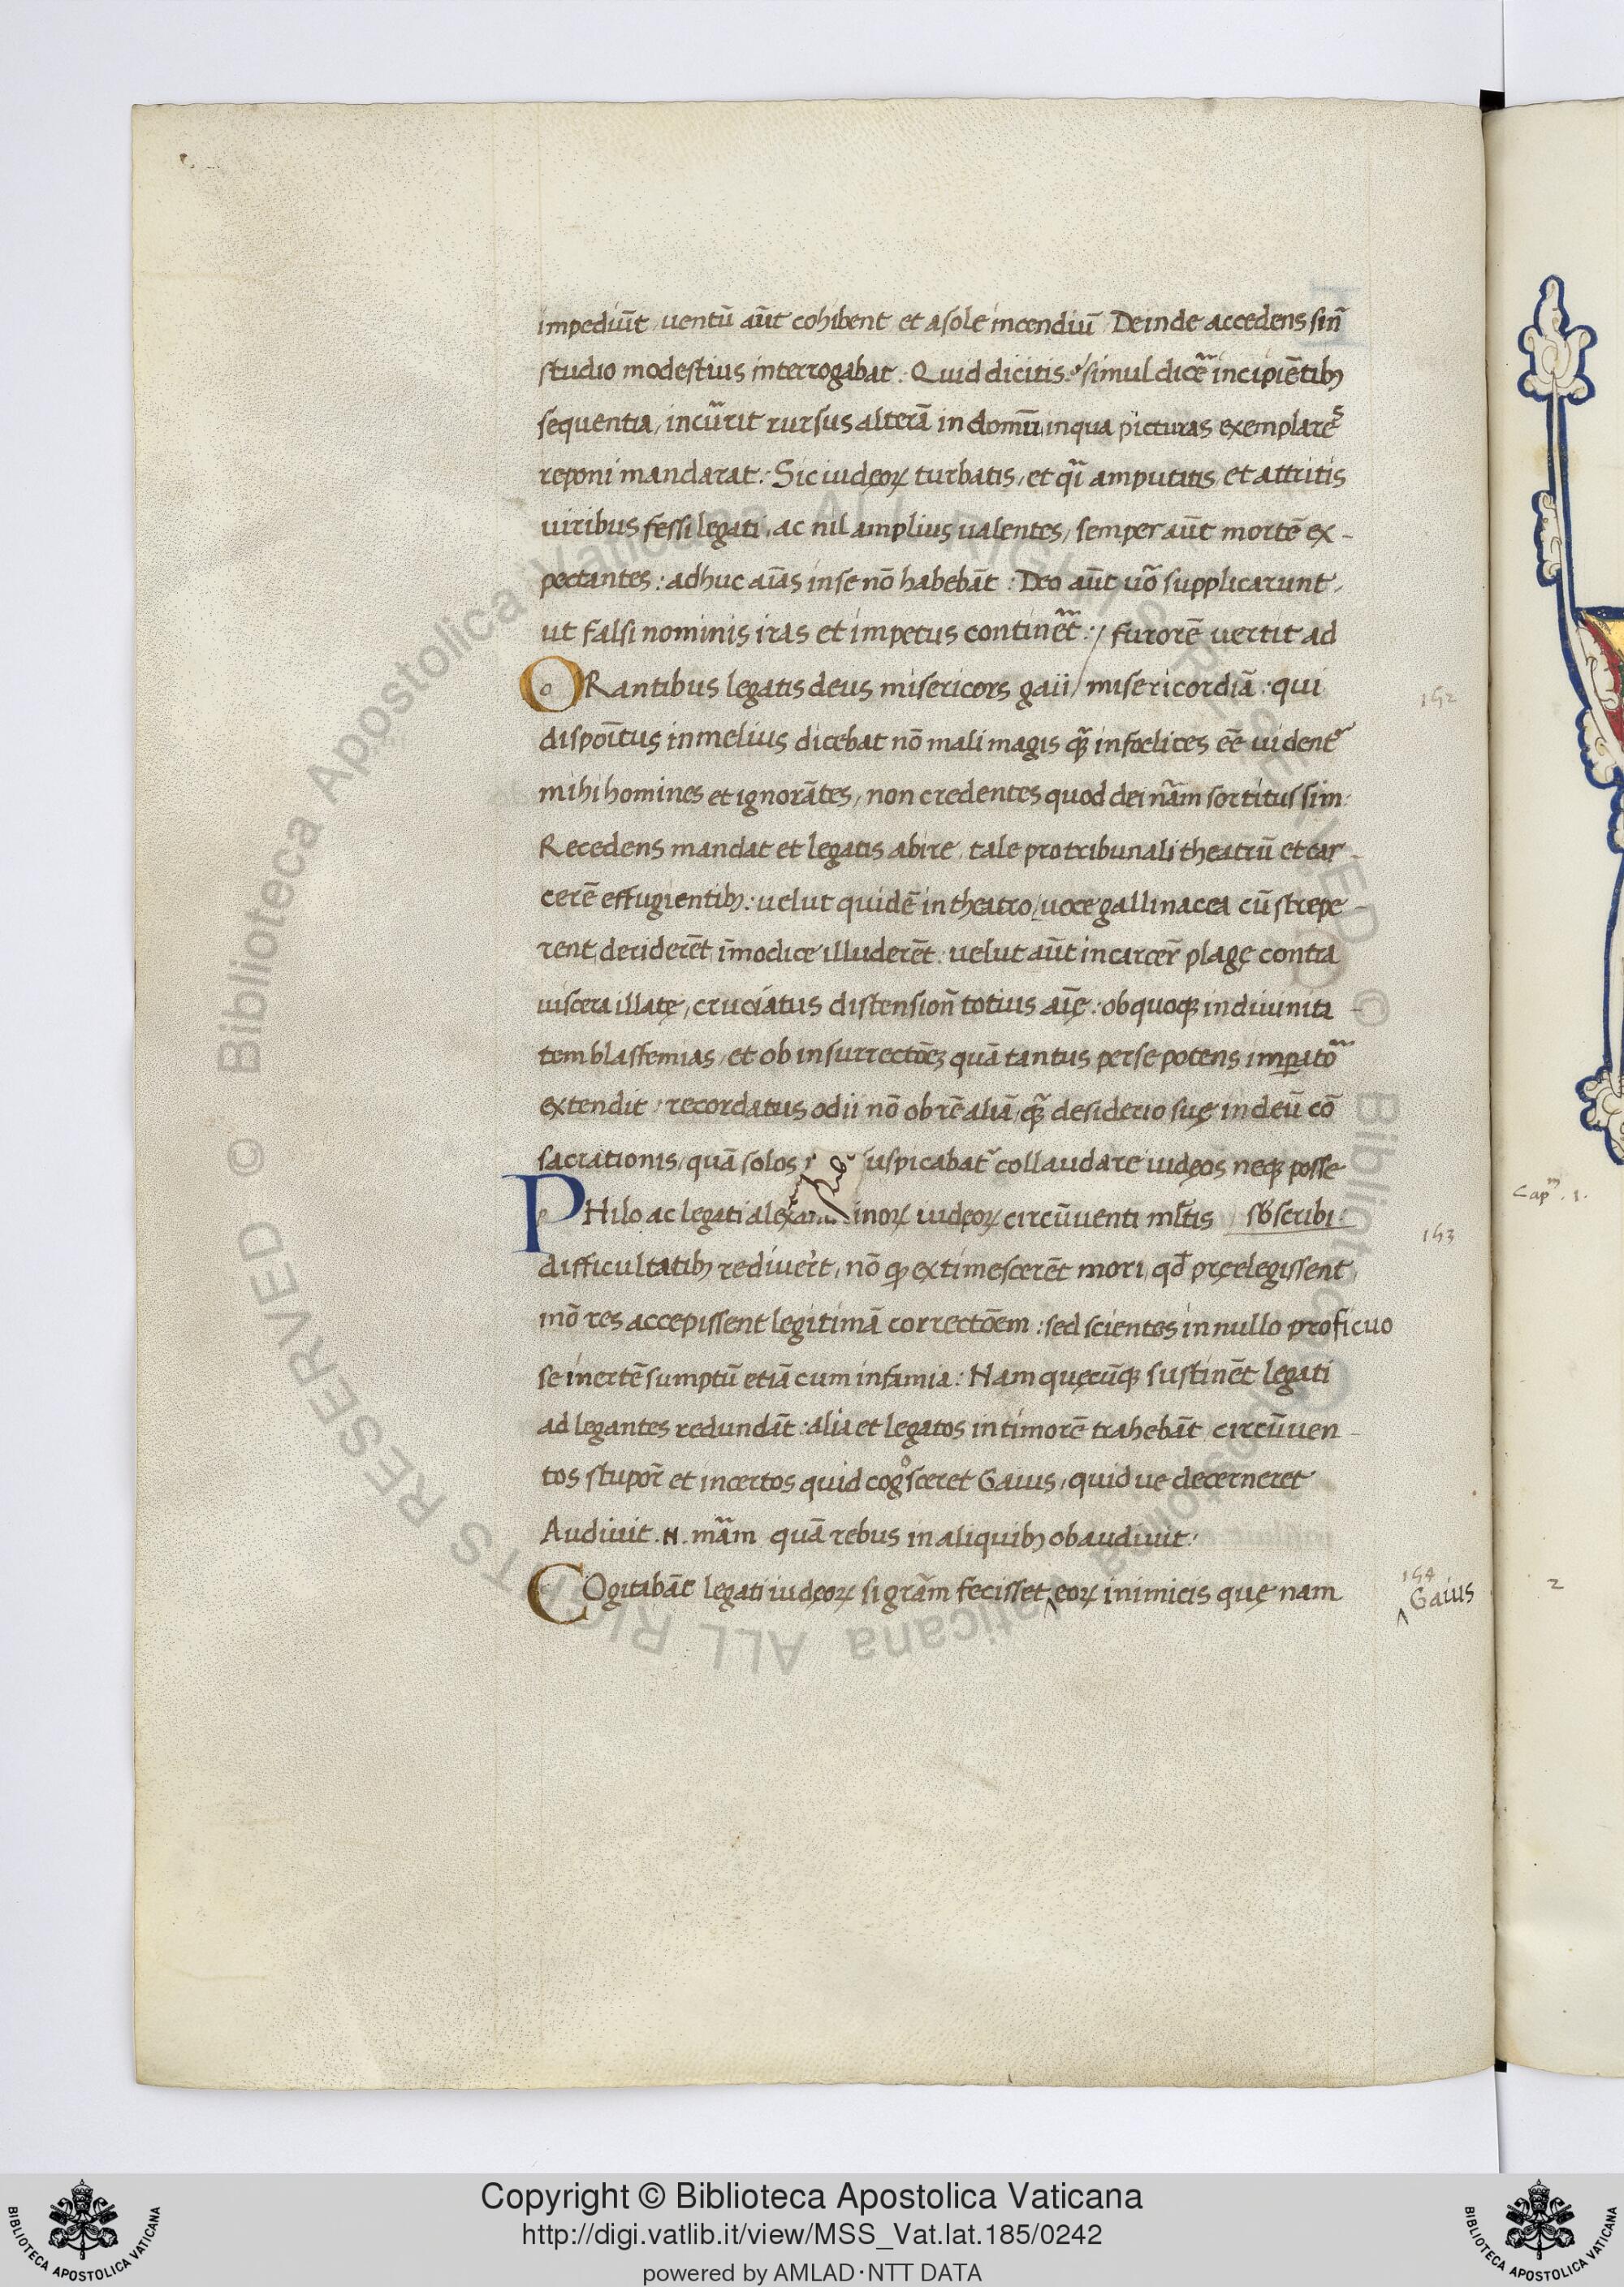 impediūt, uentū aūt cohibent et a sole incendiū Deinde accedens sin̄
studio modestius interrogabat. Quid dicitis? simul dicē incipiētib;
sequentia, incūrit rursus alterā in domū, in qua picturas exemplares
reponi mandarat: Sic iudęoꝝ turbatis, et q̄i amputatis, et attritis
uiribus fessi legati, ac nil amplius ualentes, semper aūt mortē ex-
pectantes: adhuc aīas in se nō habebāt: Deo aūt uō supplicarunt,
ut falsi nominis iras et impetus continēt: / furorē uertit ad
ORantibus legatis deus misericors gaii / misericordiā: qui
dispoītus in melius dicebat nō mali magis q̄ infoelices eē uident
mihi homines et ignorātes, non credentes quod dei nām sortitus sim:
Recedens mandat et legatis abire, tale pro tribunali theatrū et car-
cerē effugientib;: uelut quidē in theatro, uoce gallinacea cū strepe-
rent, deriderēt, īmodice illuderēt: uelut aūt in carcer̄ plagę contra
uiscera illatę, cruciatus distension̄ totius aīę: ob quoq; in diuinita-
tem blasfemias, et ob insurrectōez quā tantus per se potens imꝑatō
extendit: recordatus odii nō ob rē aliā, q̄ desiderio suę in deū cō
sacrationis, quā solos suspicabat collaudare iudęos neq; posse
PHilo ac legati inoꝝ iudęoꝝ circūuenti ml̄tis sb̄scribi
difficultatib; rediuer̄t, nō ꝙ extimescerēt mori, qd̄ pręelegissent,
mō res accepissent legitimā correctōem: sed scientes in nullo proficuo
se inertē sumptū etiā cum infamia: Nam quęcūq; sustinēt legati
ad legantes redundāt: alia et legatos in timorē trahebāt, circūuen-
tos stupor̄ et incertos quid cogosceret Gaius, quid ue decerneret
Audiuit .N. mām quā rebus in aliquib; obaudiuit:
COgitabāt legati iudęoꝝ si grām fecisset ^ eoꝝ inimicis quę nam
152
153
154
^ Gaius
Cap. 1.
2
© Biblioteca Apostolica Vaticana ALL RIGHTS RESERVED © Biblioteca Apostolica Vaticana ALL RIGHTS RESERVED
Copyright © Biblioteca Apostolica Vaticana
http://digi.vatlib.it/view/MSS_Vat.lat.185/0242
powered by AMLAD·NTT DATA
BIBLIOTECA APOSTOLICA VATICANA
BIBLIOTECA APOSTOLICA VATICANA